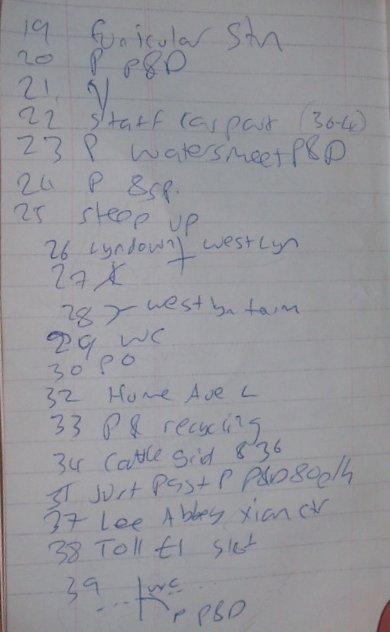 19 Funicular Stn
20 P P&D
21
22 Staff car park (30-4)
23 P Watersmeet P&D
24 P 8sp.
25 steep up
26 Lyndown westlyn
27
28 west lyn farm
29 WC
30 PO
32 Hume Ave L
33 P & recycling
34 Cattle Grid 836
31 Just Past P P&D 80p/h
37 Lee Abbey Xian ctr
38 Toll £1 slot
39 WC
P P&D